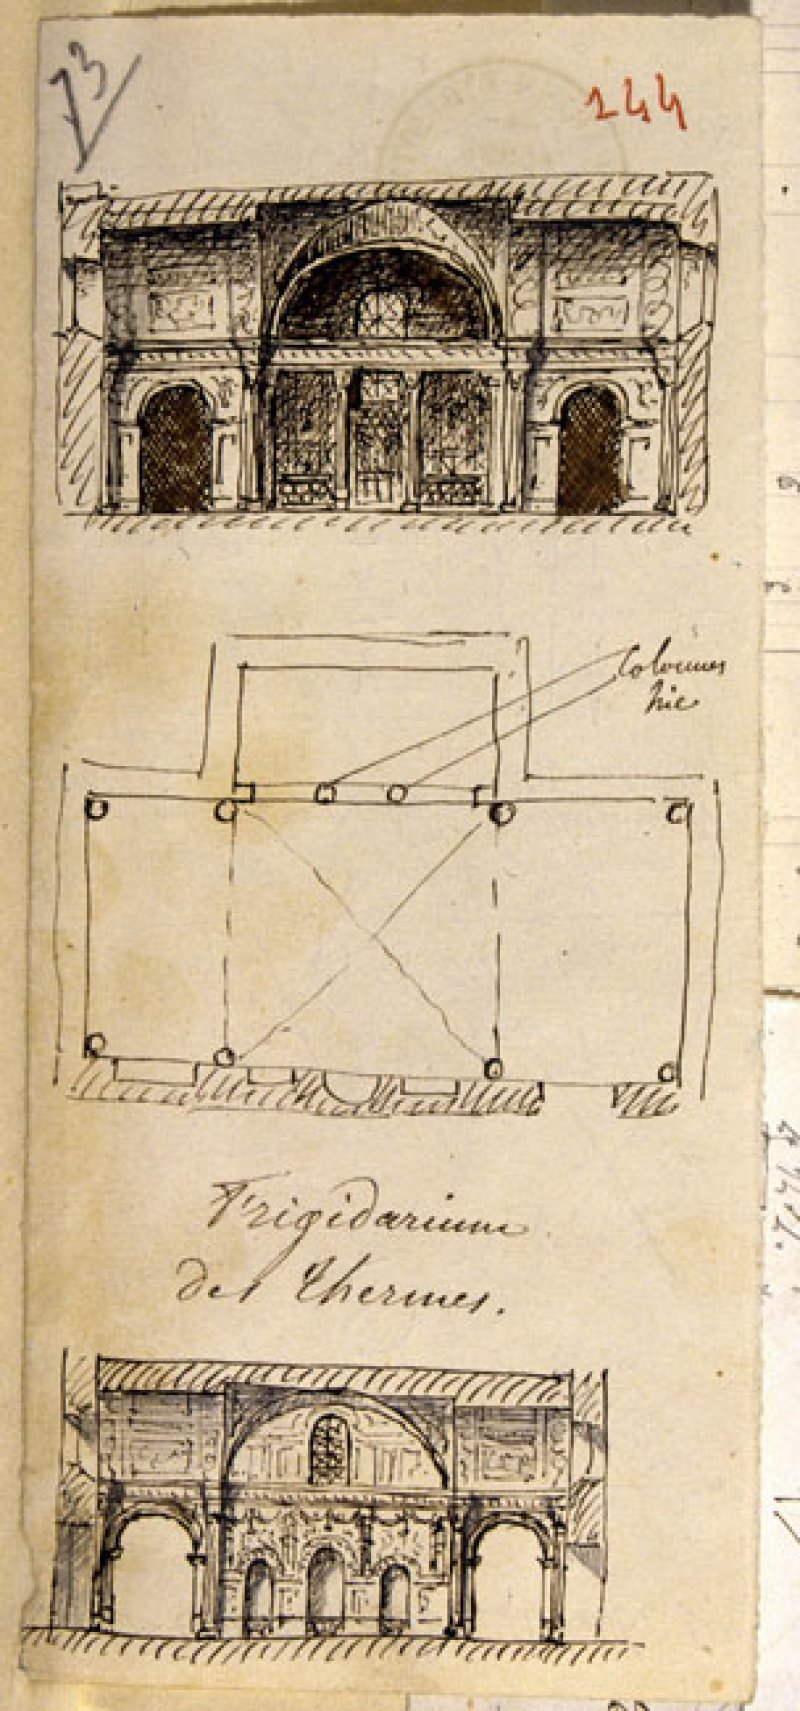 73
144
Colonnes
Frigidarium
des Thermes.